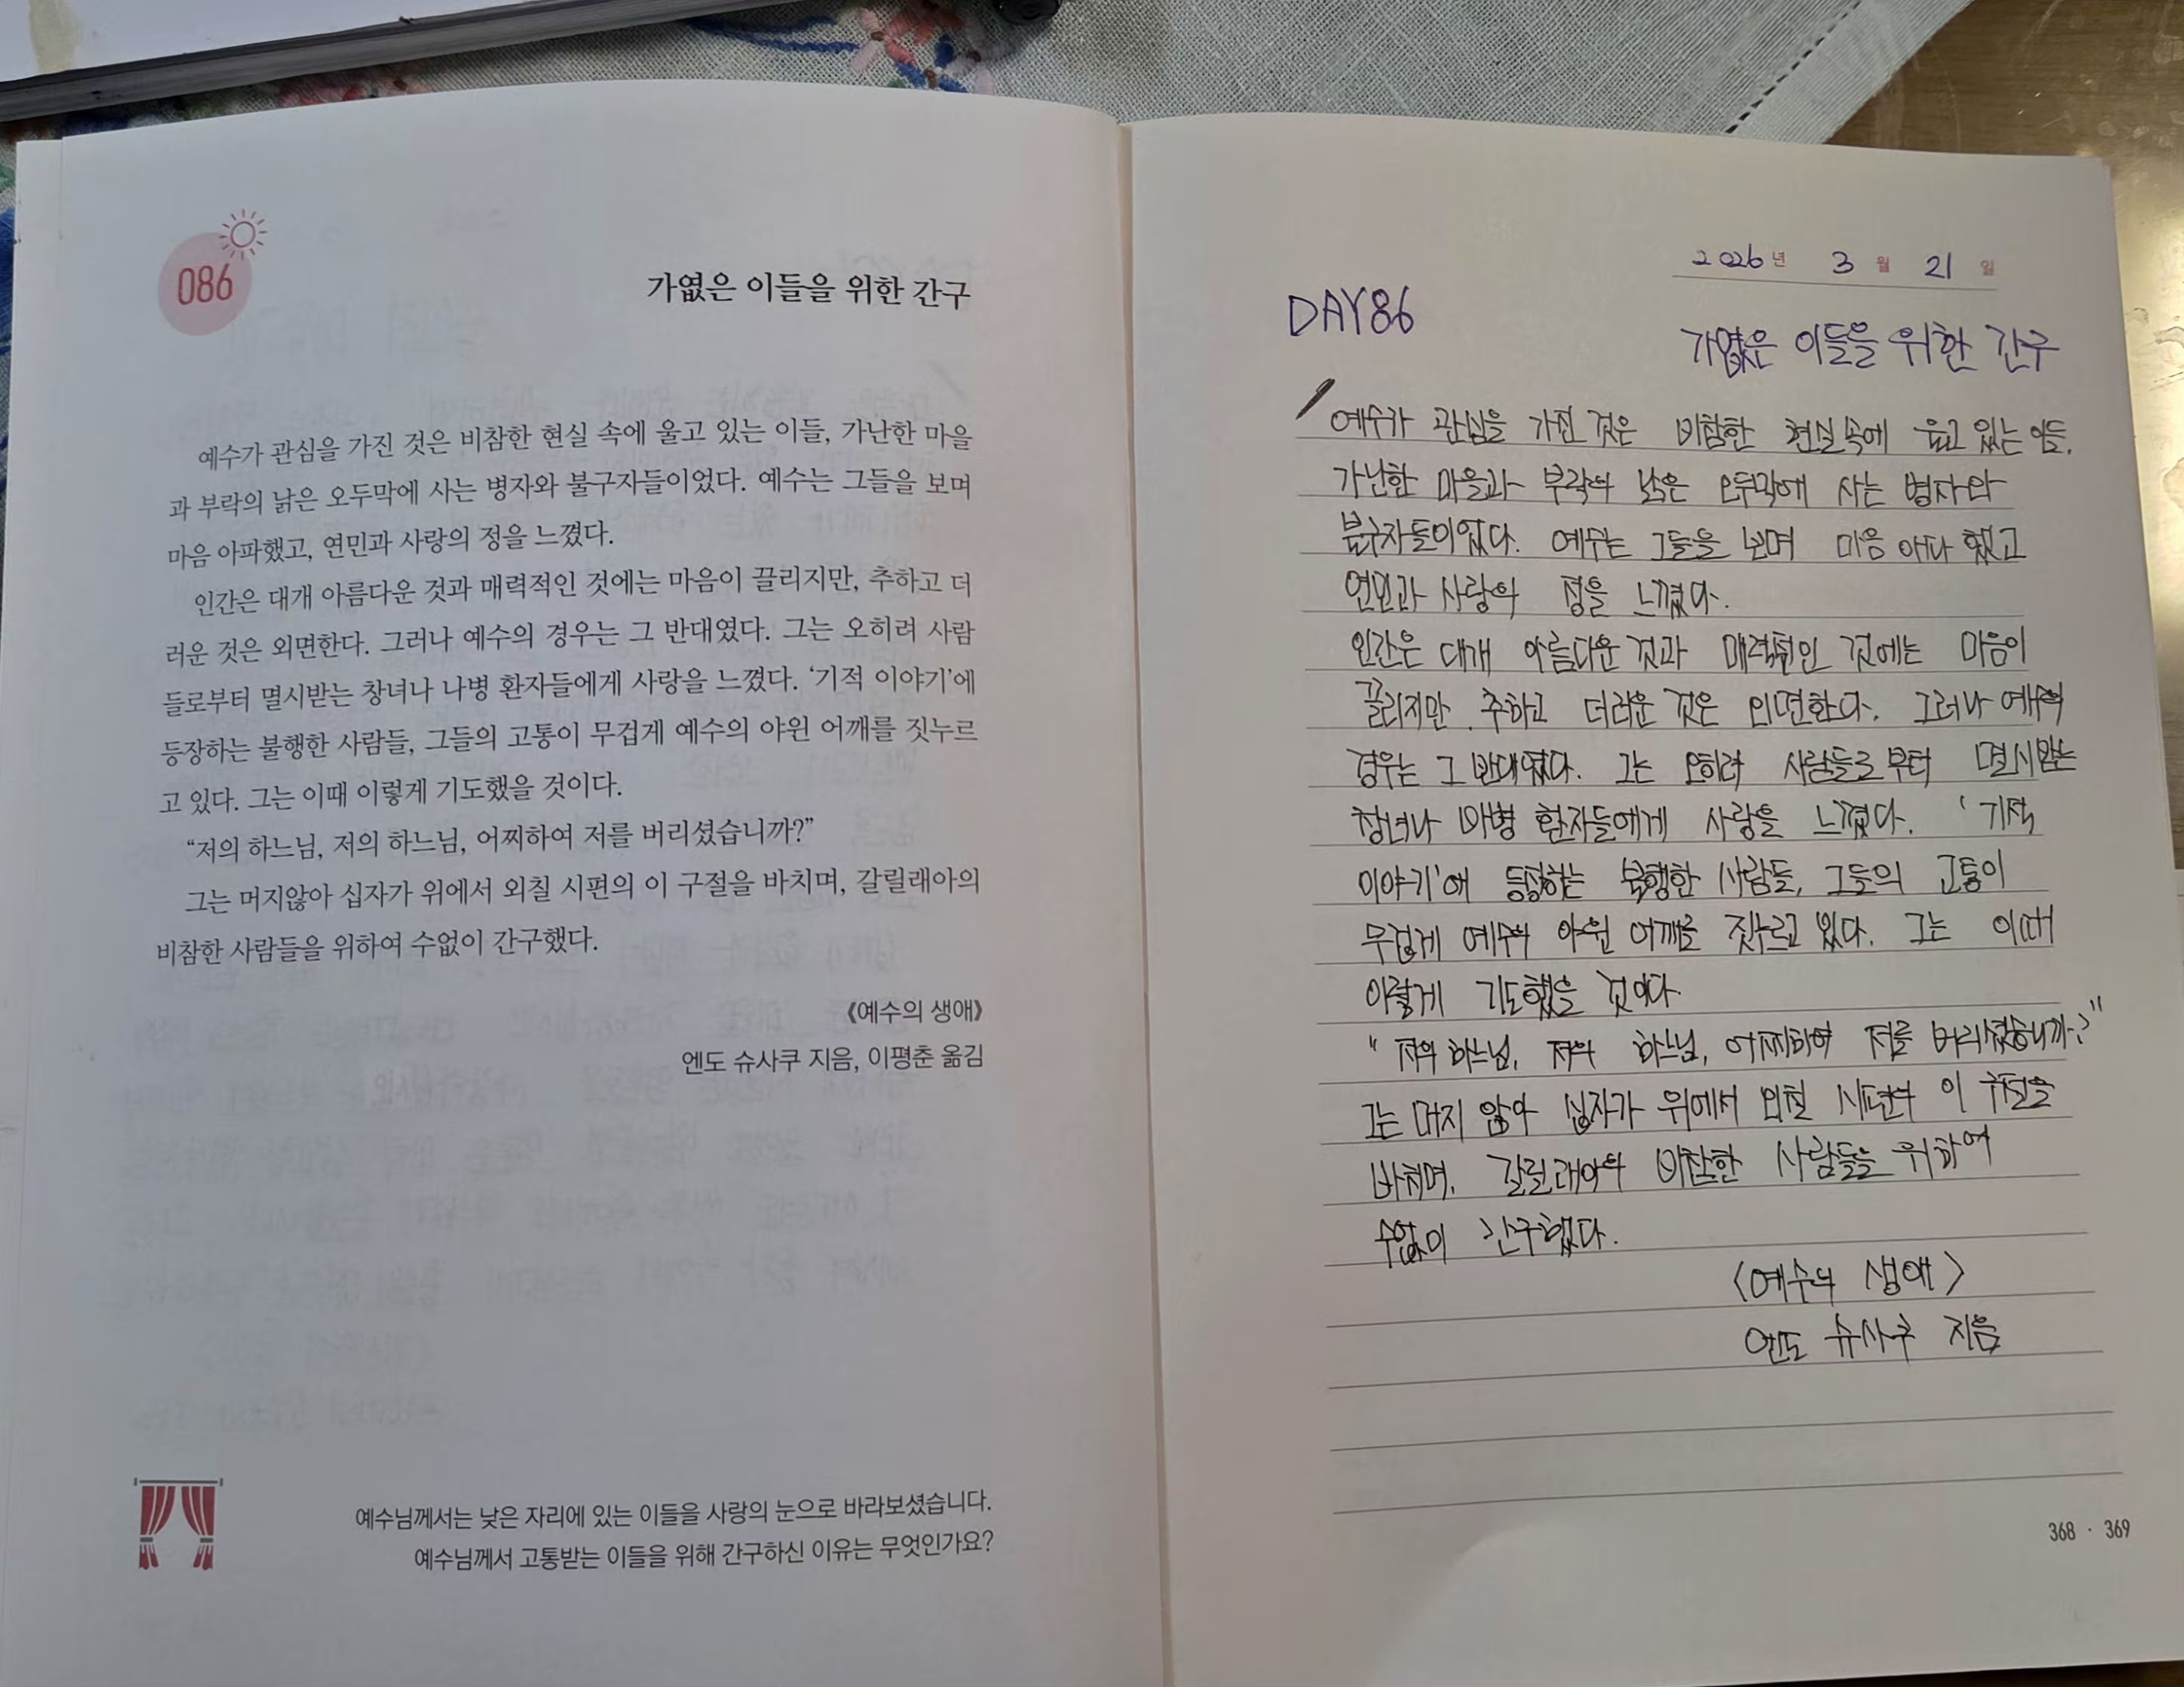 086
가엾은 이들을 위한 간구
예수가 관심을 가진 것은 비참한 현실 속에 울고 있는 이들, 가난한 마을
과 부락의 낡은 오두막에 사는 병자와 불구자들이었다. 예수는 그들을 보며
마음 아파했고, 연민과 사랑의 정을 느꼈다.
인간은 대개 아름다운 것과 매력적인 것에는 마음이 끌리지만, 추하고 더
러운 것은 외면한다. 그러나 예수의 경우는 그 반대였다. 그는 오히려 사람
들로부터 멸시받는 창녀나 나병 환자들에게 사랑을 느꼈다. ‘기적 이야기’에
등장하는 불행한 사람들, 그들의 고통이 무겁게 예수의 야윈 어깨를 짓누르
고 있다. 그는 이때 이렇게 기도했을 것이다.
“저의 하느님, 저의 하느님, 어찌하여 저를 버리셨습니까?”
그는 머지않아 십자가 위에서 외칠 시편의 이 구절을 바치며, 갈릴래아의
비참한 사람들을 위하여 수없이 간구했다.
《예수의 생애》
엔도 슈사쿠 지음, 이평춘 옮김
예수님께서는 낮은 자리에 있는 이들을 사랑의 눈으로 바라보셨습니다.
예수님께서 고통받는 이들을 위해 간구하신 이유는 무엇인가요?
2026년 3월 21일
DAY86
가엾은 이들을 위한 간구
예수가 관심을 가진 것은 비참한 현실 속에 울고 있는 이들,
가난한 마을과 부락의 낡은 오두막에 사는 병자와
불구자들이었다. 예수는 그들을 보며 마음 아파 했고
연민과 사랑의 정을 느꼈다.
인간은 대개 아름다운 것과 매력적인 것에는 마음이
끌리지만, 추하고 더러운 것은 외면한다. 그러나 예수의
경우는 그 반대였다. 그는 오히려 사람들로부터 멸시받는
창녀나 나병 환자들에게 사랑을 느꼈다. ‘기적
이야기’에 등장하는 불행한 사람들, 그들의 고통이
무겁게 예수의 야윈 어깨를 짓누르고 있다. 그는 이때
이렇게 기도했을 것이다.
“저의 하느님, 저의 하느님, 어찌하여 저를 버리셨습니까?”
그는 머지 않아 십자가 위에서 외칠 시편의 이 구절을
바치며, 갈릴래아의 비참한 사람들을 위하여
수없이 간구했다.
〈예수의 생애〉
엔도 슈사쿠 지음
368 · 369